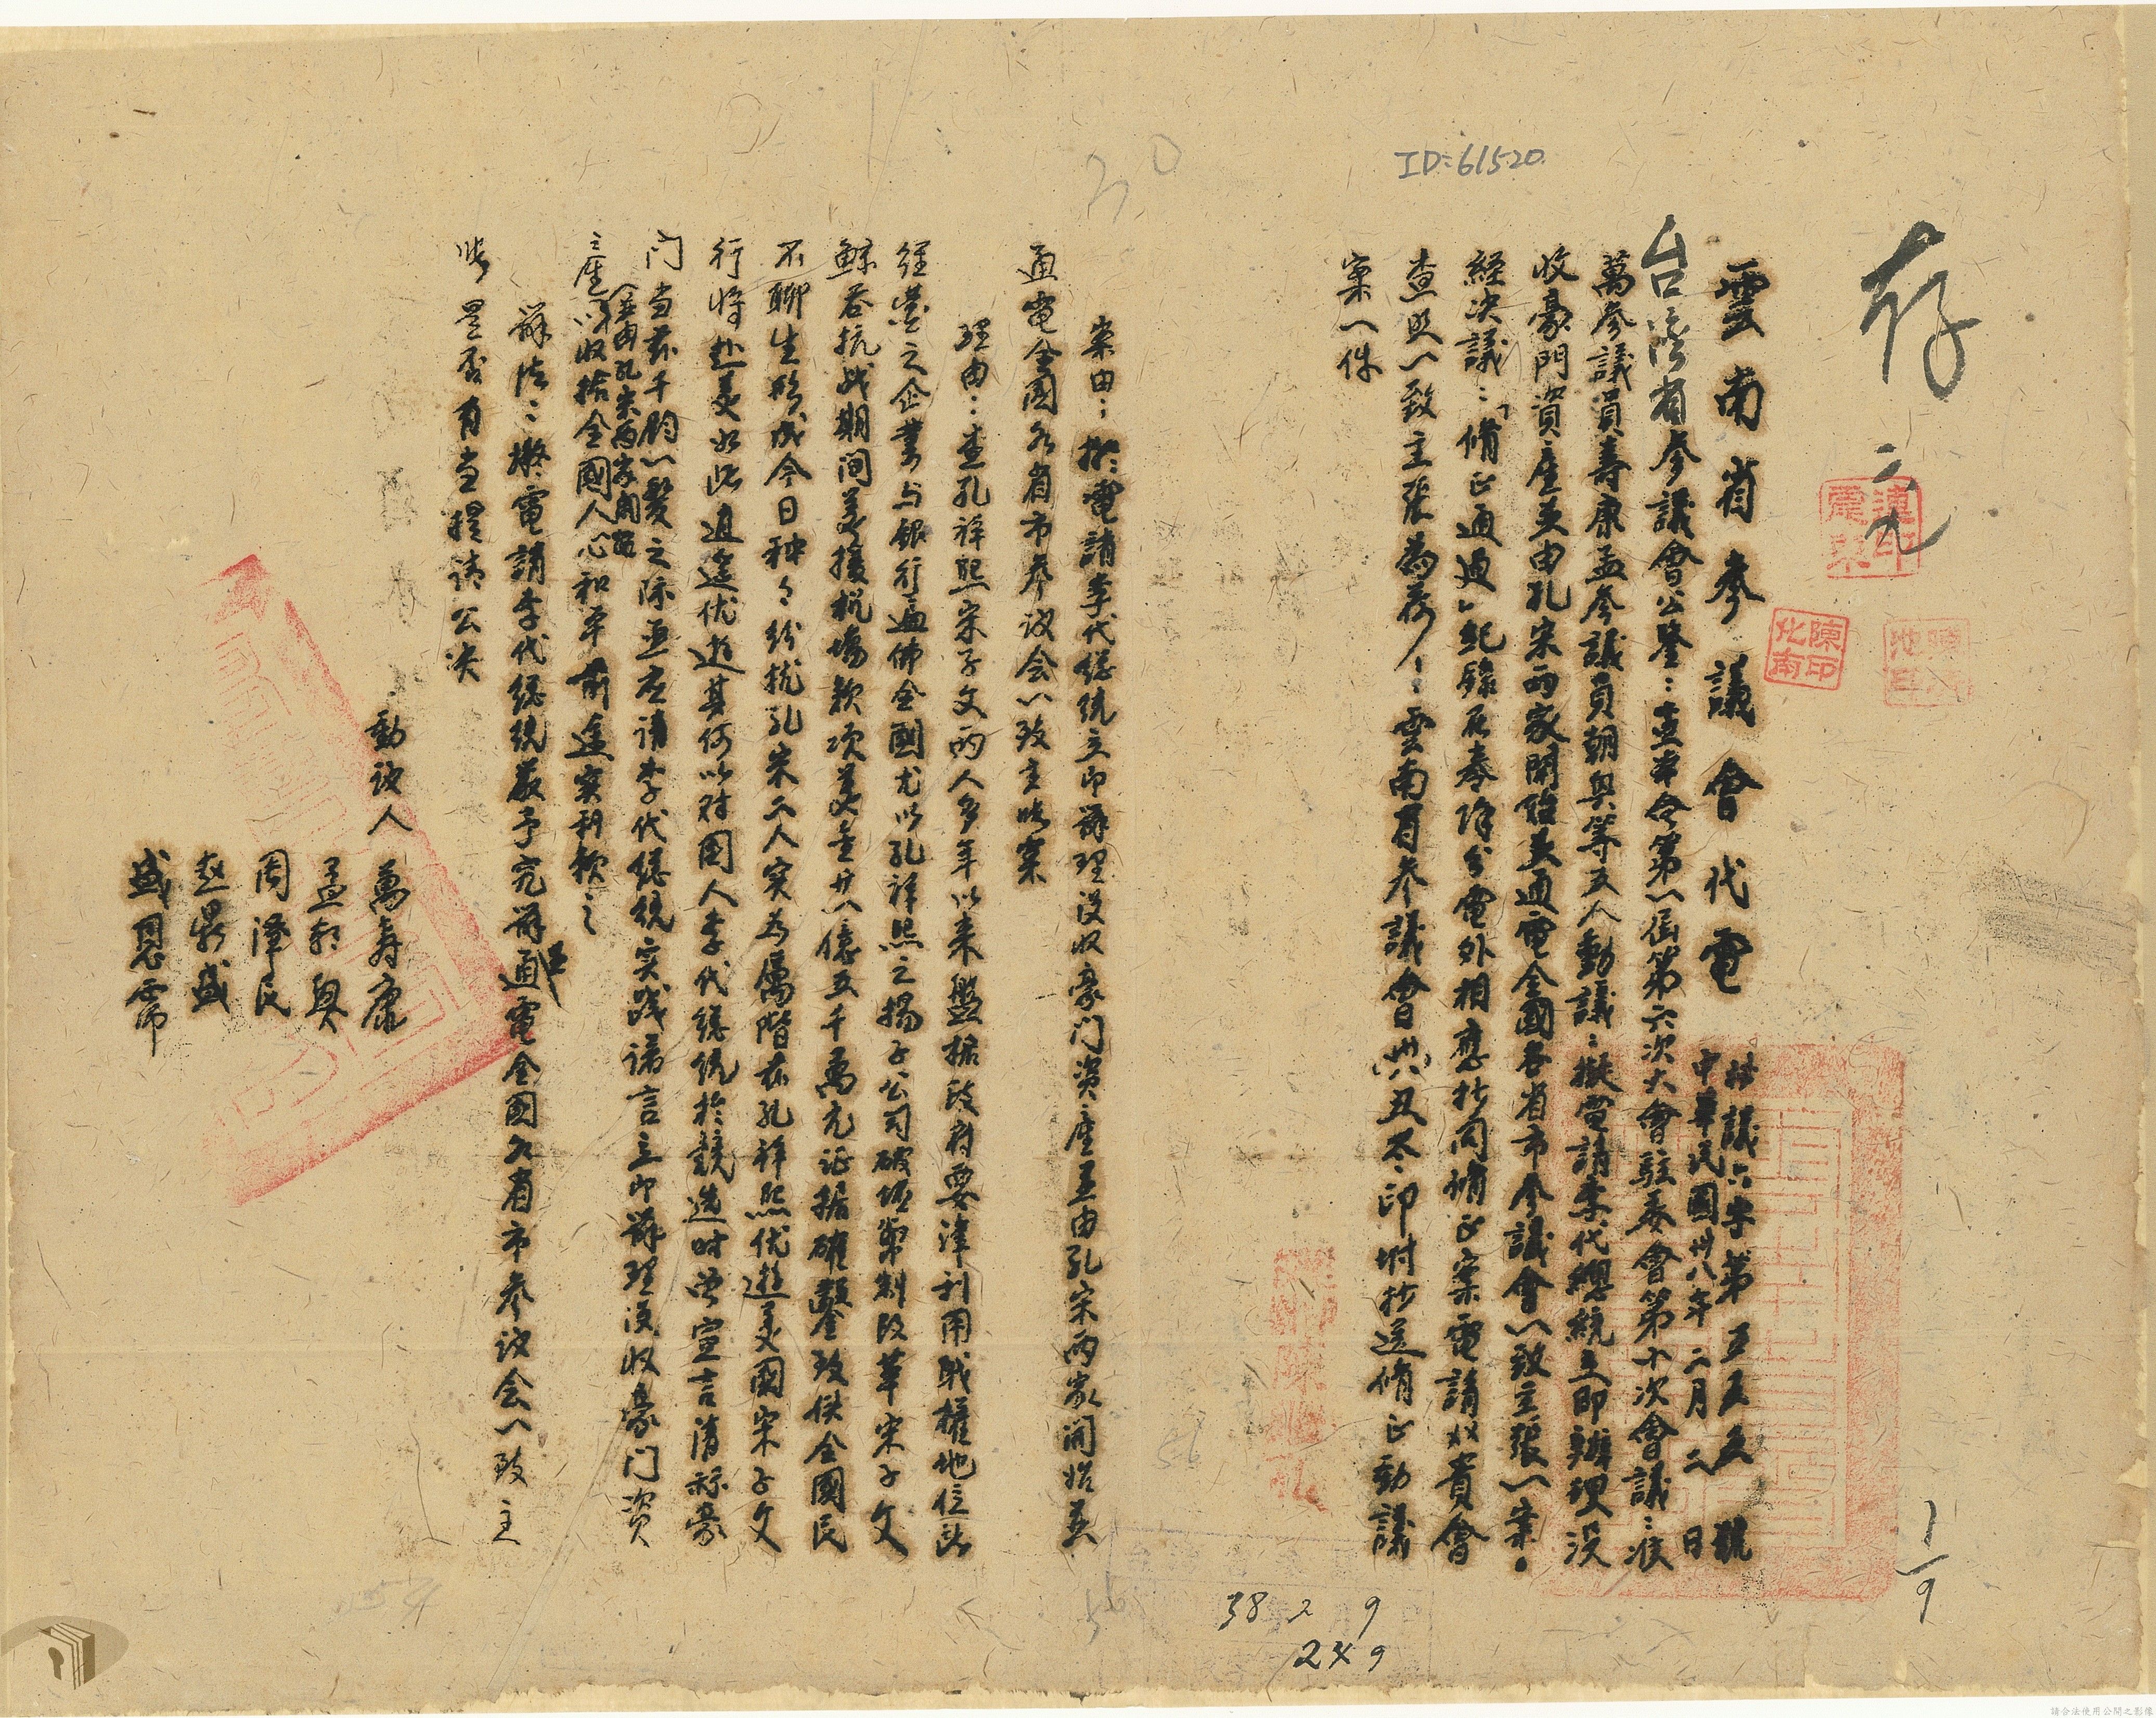 ID:61520
存
二九
連印震東
陳印北南
雲南省參議會代電
樁議六字第五五五號
中華民國卅八年二月二日
台灣省參議會公鑒：查本会第一屆第六次大會駐委會第十次會議：准
萬參議員壽康孟參議員朝興等五人動議：擬電請李代總統立即辦理沒
收豪門資產並由孔宋两家開始並通電全國各省市參議會一致主張一案。
經決議：「修正通過」紀錄在卷除分電外相應抄同修正案電請貴會
查照一致主張為荷！：雲南省参議會丑冬印坿抄送修正動議
案一件
案由：擬電請李代總統立即辦理没收豪门資產並由孔宋两家開始並
通電全國各省市參议会一致主张案
理由：查孔祥熙宋子文两人多年以来盤据政府要津利用職權地位所
經营之企業与銀行遍佈全國尤以孔祥熙之揚子公司破壞幣制改革宋子文
鯨吞抗战期间美援机場款项美金廿八億五千萬元证据確鑿致使全國民
不聊生形成今日种々紛扰孔宋二人实為厲階兹孔祥熙优遊美國宋子文
行将赴美如此逍遥优遊其何以对國人李代總統於競选时曾宣言清算豪
门当兹千鈞一髮之际亟应请李代總統实践諾言立即辦理没收豪门资
產並由孔宋两家開始以收拾全國人心和平前途实利赖之
辦法：擬電請李代總統嚴予完辦並通電全國各省市參议会一致主
张是否有当提請公决
動议人 萬壽康
孟朝興
周澤民
赵鼎盛
盛恩霈
38 2 9
2 x 9
1/9
請合法使用公開之影像